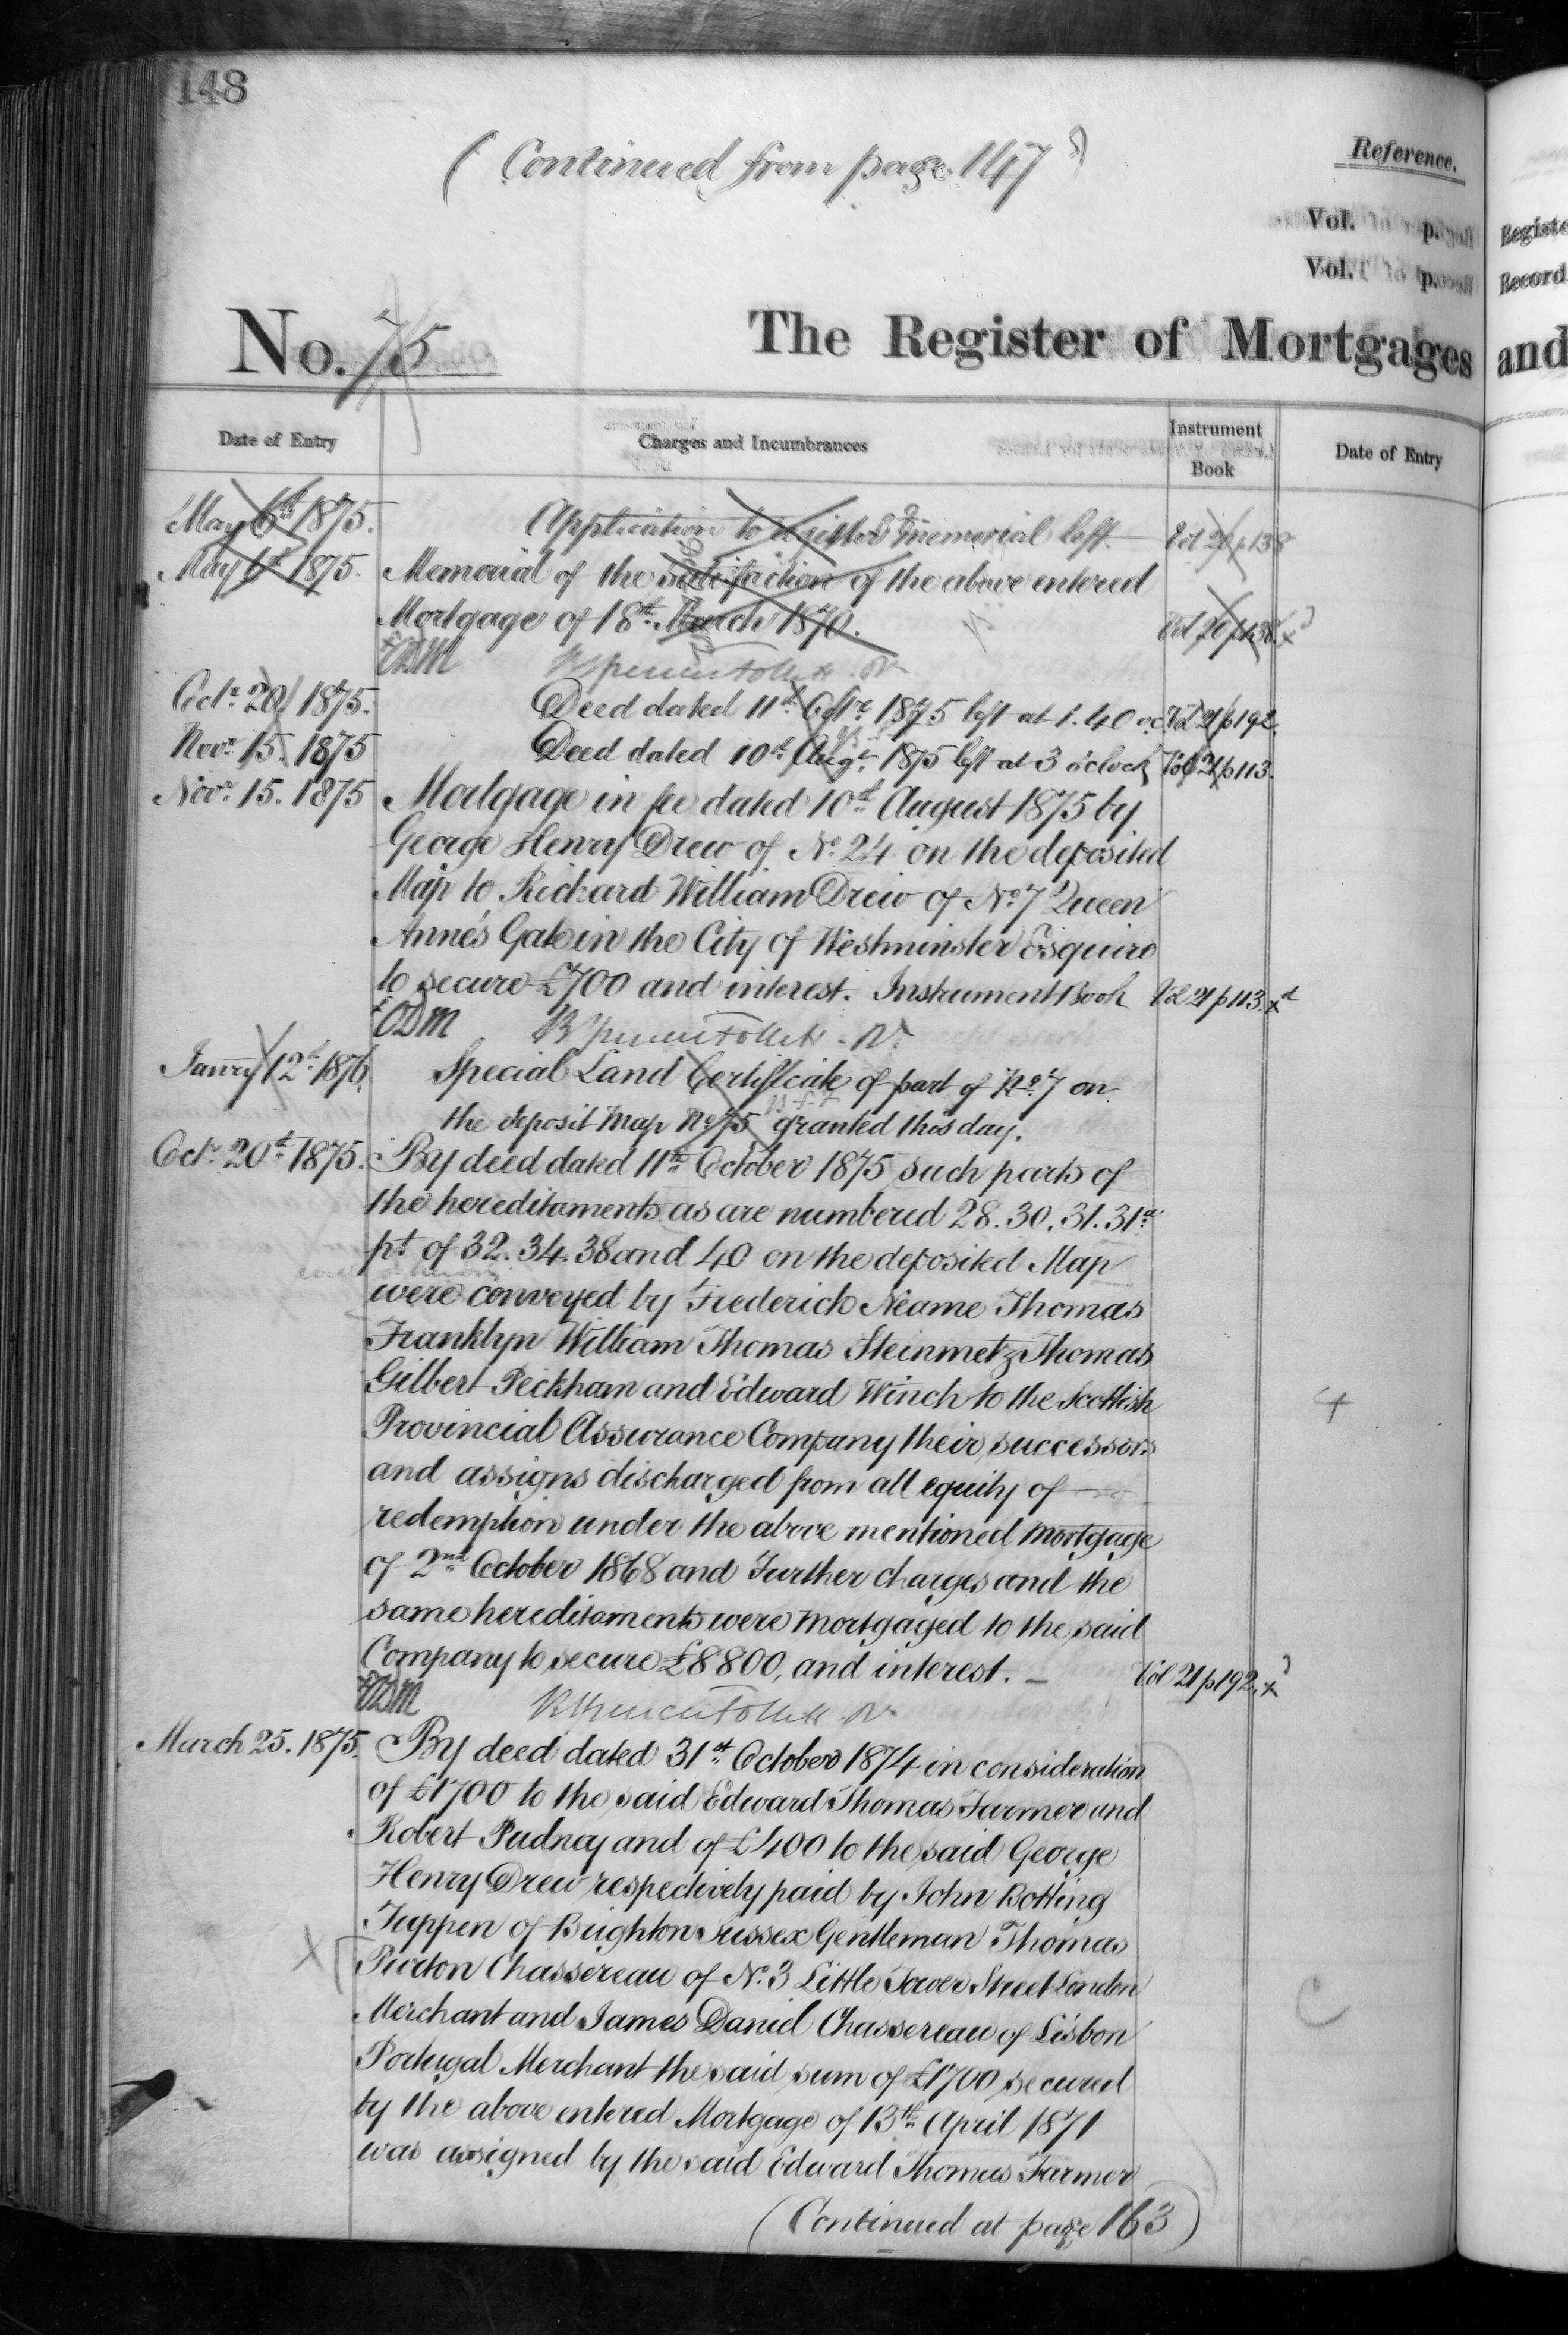 148
(Continued from page 147)
Reference.
Vol. p.
Vol. p.
Registe
Record
No. 75
The Register of Mortgages and
Date of Entry
Charges and Incumbrances
Instrument
Book
Date of Entry
May 6th 1875. Application to register memorial left. Vol 20 p 138
May 6th 1875. Memorial of the satisfaction of the above entered
Mortgage of 18th March 1870. Vol 20 p 138. x
Octr 20/ 1875. Deed dated 11th Octr 1875 left at 1.40 oc Vol 21 p 192.
Novr 15. 1875 Deed dated 10th Augt. 1875 left at 3 o'clock Vol 21 p 113.
Novr 15. 1875 Mortgage in fee dated 10th August 1875 by
George Henry Drew of No. 24 on the deposited
Map to Richard William Drew of No. 7 Queen
Anne's Gate in the City of Westminster Esquire
to secure £700 and interest. Instrument Book Vol 21 p 113. x
Janry 12th 1876. Special Land Certificate of part of No. 7 on
the deposit Map No 75 granted this day.
Octr 20th 1875. By deed dated 11th October 1875 such parts of
the hereditaments as are numbered 28. 30. 31. 31a
pt of 32. 34. 38 and 40 on the deposited Map
were conveyed by Frederick Neame Thomas
Franklyn William Thomas Steinmetz Thomas
Gilbert Peckham and Edward Winch to the Scottish
Provincial Assurance Company their successors
and assigns discharged from all equity of
redemption under the above mentioned mortgage
of 2nd October 1868 and Further charges and the
same hereditaments were mortgaged to the said
Company to secure £8800, and interest. — Vol 21 p 192. x
March 25. 1875. By deed dated 31st October 1874 in consideration
of £1700 to the said Edward Thomas Farmer and
Robert Pudney and of £400 to the said George
Henry Drew respectively paid by John Botting
Tuppen of Brighton Sussex Gentleman Thomas
Purton Chassereau of No. 3 Little Tower Street London
Merchant and James Daniel Chassereau of Lisbon
Portugal Merchant the said sum of £1700 secured
by the above entered Mortgage of 13th April 1871
was assigned by the said Edward Thomas Farmer
(Continued at page 163)